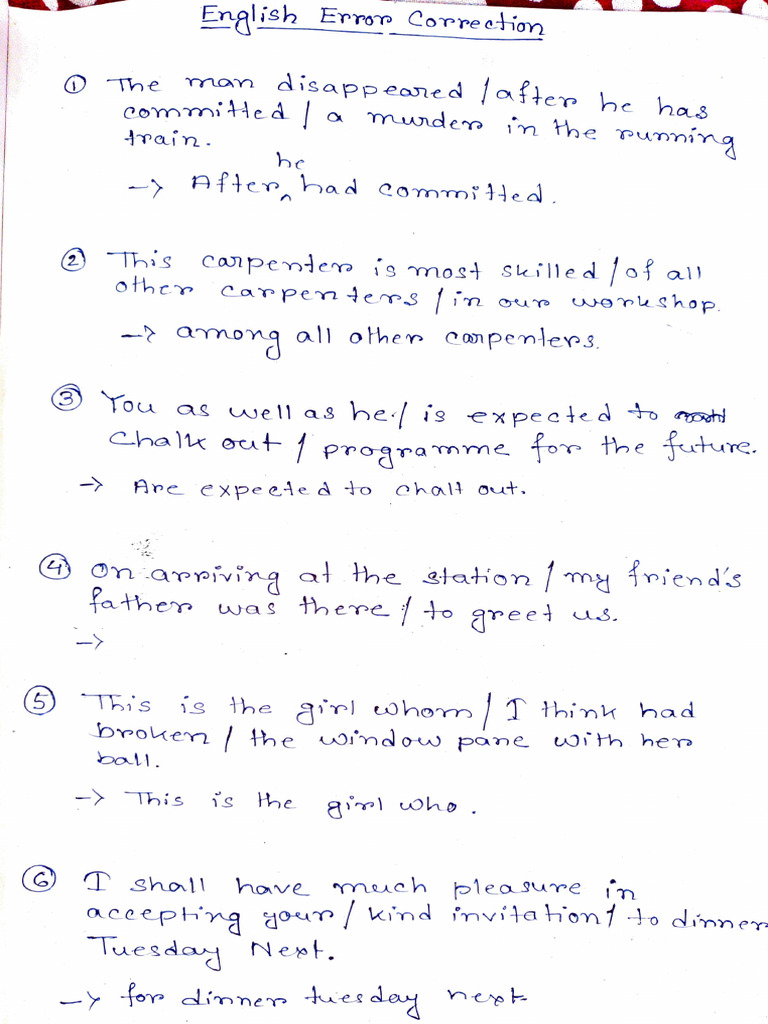 English Error Correction
① The man disappeared / after he has
committed / a murder in the running
train.
he
→ After ^ had committed.
② This carpenter is most skilled / of all
other carpenters / in our workshop.
→ among all other carpenters.
③ You as well as he / is expected to
chalk out / programme for the future.
→ Are expected to chalt out.
④ On arriving at the station / my friend's
father was there / to greet us.
→
⑤ This is the girl whom / I think had
broken / the window pane with her
ball.
→ This is the girl who.
⑥ I shall have much pleasure in
accepting your / kind invitation / to dinner
Tuesday Next.
→ for dinner tuesday next